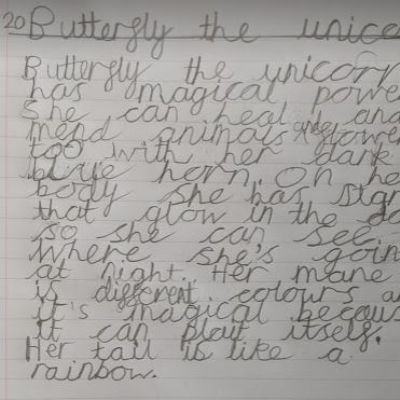 20 Butterfly the unico
Butterfly the unicorn
has magical power
She can heal and
mend animals and flower
too with her dark
blue horn. On he
body she has sign
that glow in the da
so she can see
where she's goin
at night. Her mane
is different colours a
it's magical becous
it can plait itself.
Her tail is like a
rainbow.